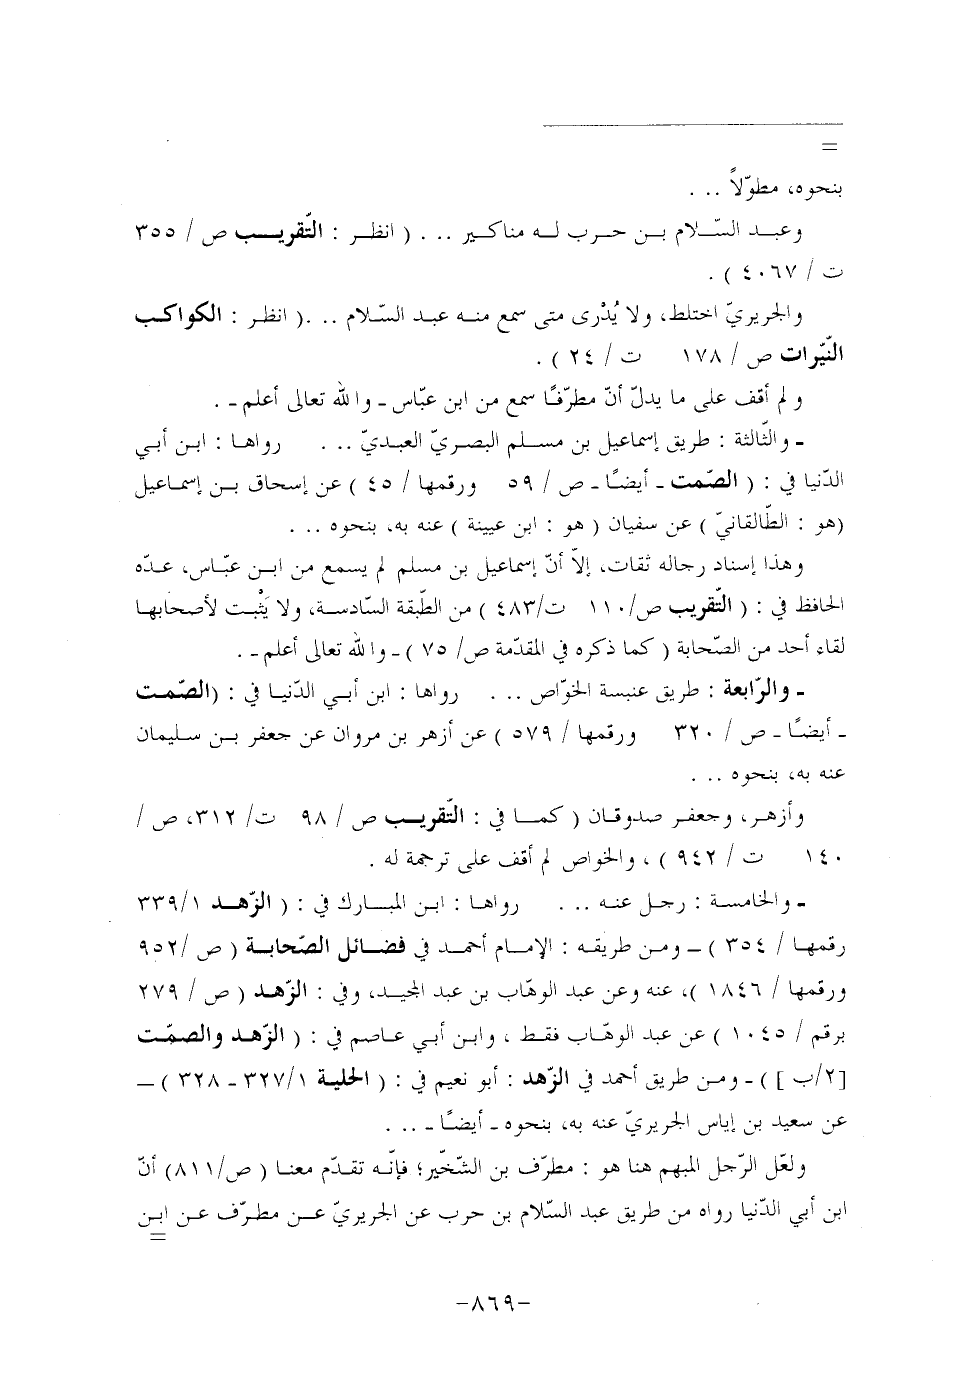 =
بنحوه، مطوّلاً . . .
وعبد السّلام بن حرب له مناكير . . . ( انظر : التّقريب ص / ٣٥٥
ت / ٤٠٦٧ ) .
والجريريّ اختلط، ولا يُدْرى متى سمع منه عبد السّلام . . . ( انظر : الكواكب
النّيّرات ص / ١٧٨ ت / ٢٤ ) .
ولم أقف على ما يدلّ أنّ مطرّفًا سمع من ابن عبّاس ـ والله تعالى أعلم ـ .
ـ والثّالثة : طريق إسماعيل بن مسلم البصريّ العبديّ . . . رواها : ابن أبي
الدّنيا في : ( الصّمت ـ أيضًا ـ ص / ٥٩ ورقمها / ٤٥ ) عن إسحاق بن إسماعيل
(هو : الطّالقانيّ ) عن سفيان ( هو : ابن عيينة ) عنه به، بنحوه . . .
وهذا إسناد رجاله ثقات، إلاّ أنّ إسماعيل بن مسلم لم يسمع من ابن عبّاس، عدّه
الحافظ في : ( التّقريب ص/١١٠ ت/٤٨٣ ) من الطّبقة السّادسة، ولا يَثْبت لأصحابها
لقاء أحد من الصّحابة ( كما ذكره في المقدّمة ص/ ٧٥ ) ـ والله تعالى أعلم ـ .
ـ والرّابعة : طريق عنبسة الخوّاص . . . رواها : ابن أبي الدّنيا في : (الصّمت
ـ أيضًا ـ ص / ٣٢٠ ورقمها / ٥٧٩ ) عن أزهر بن مروان عن جعفر بن سليمان
عنه به، بنحوه . . .
وأزهر، وجعفر صدوقان ( كما في : التّقريب ص / ٩٨ ت/ ٣١٢، ص /
١٤٠ ت / ٩٤٢ ) ، والخواص لم أقف على ترجمة له .
ـ والخامسة : رجل عنه . . . رواها : ابن المبارك في : ( الزّهد ١/ ٣٣٩
رقمها / ٣٥٤ ) ــ ومن طريقه : الإمام أحمد في فضائل الصّحابة ( ص /٩٥٢
ورقمها / ١٨٤٦ )، عنه وعن عبد الوهّاب بن عبد المجيد، وفي : الزّهد ( ص / ٢٧٩
برقم / ١٠٤٥ ) عن عبد الوهّاب فقط ، وابن أبي عاصم في : ( الزّهد والصمّت
[٢/ب ] ) ـ ومن طريق أحمد في الزّهد : أبو نعيم في : ( الحلية ١/ ٣٢٧ ـ ٣٢٨ ) ــ
عن سعيد بن إياس الجريريّ عنه به، بنحوه ـ أيضًا ـ . . .
ولعّل الرّجل المبهم هنا هو : مطرّف بن الشّخّير؛ فإنّه تقدّم معنا ( ص/٨١١) أنّ
ابن أبي الدّنيا رواه من طريق عبد السّلام بن حرب عن الجريريّ عن مطرّف عن ابن
=
-٨٦٩-